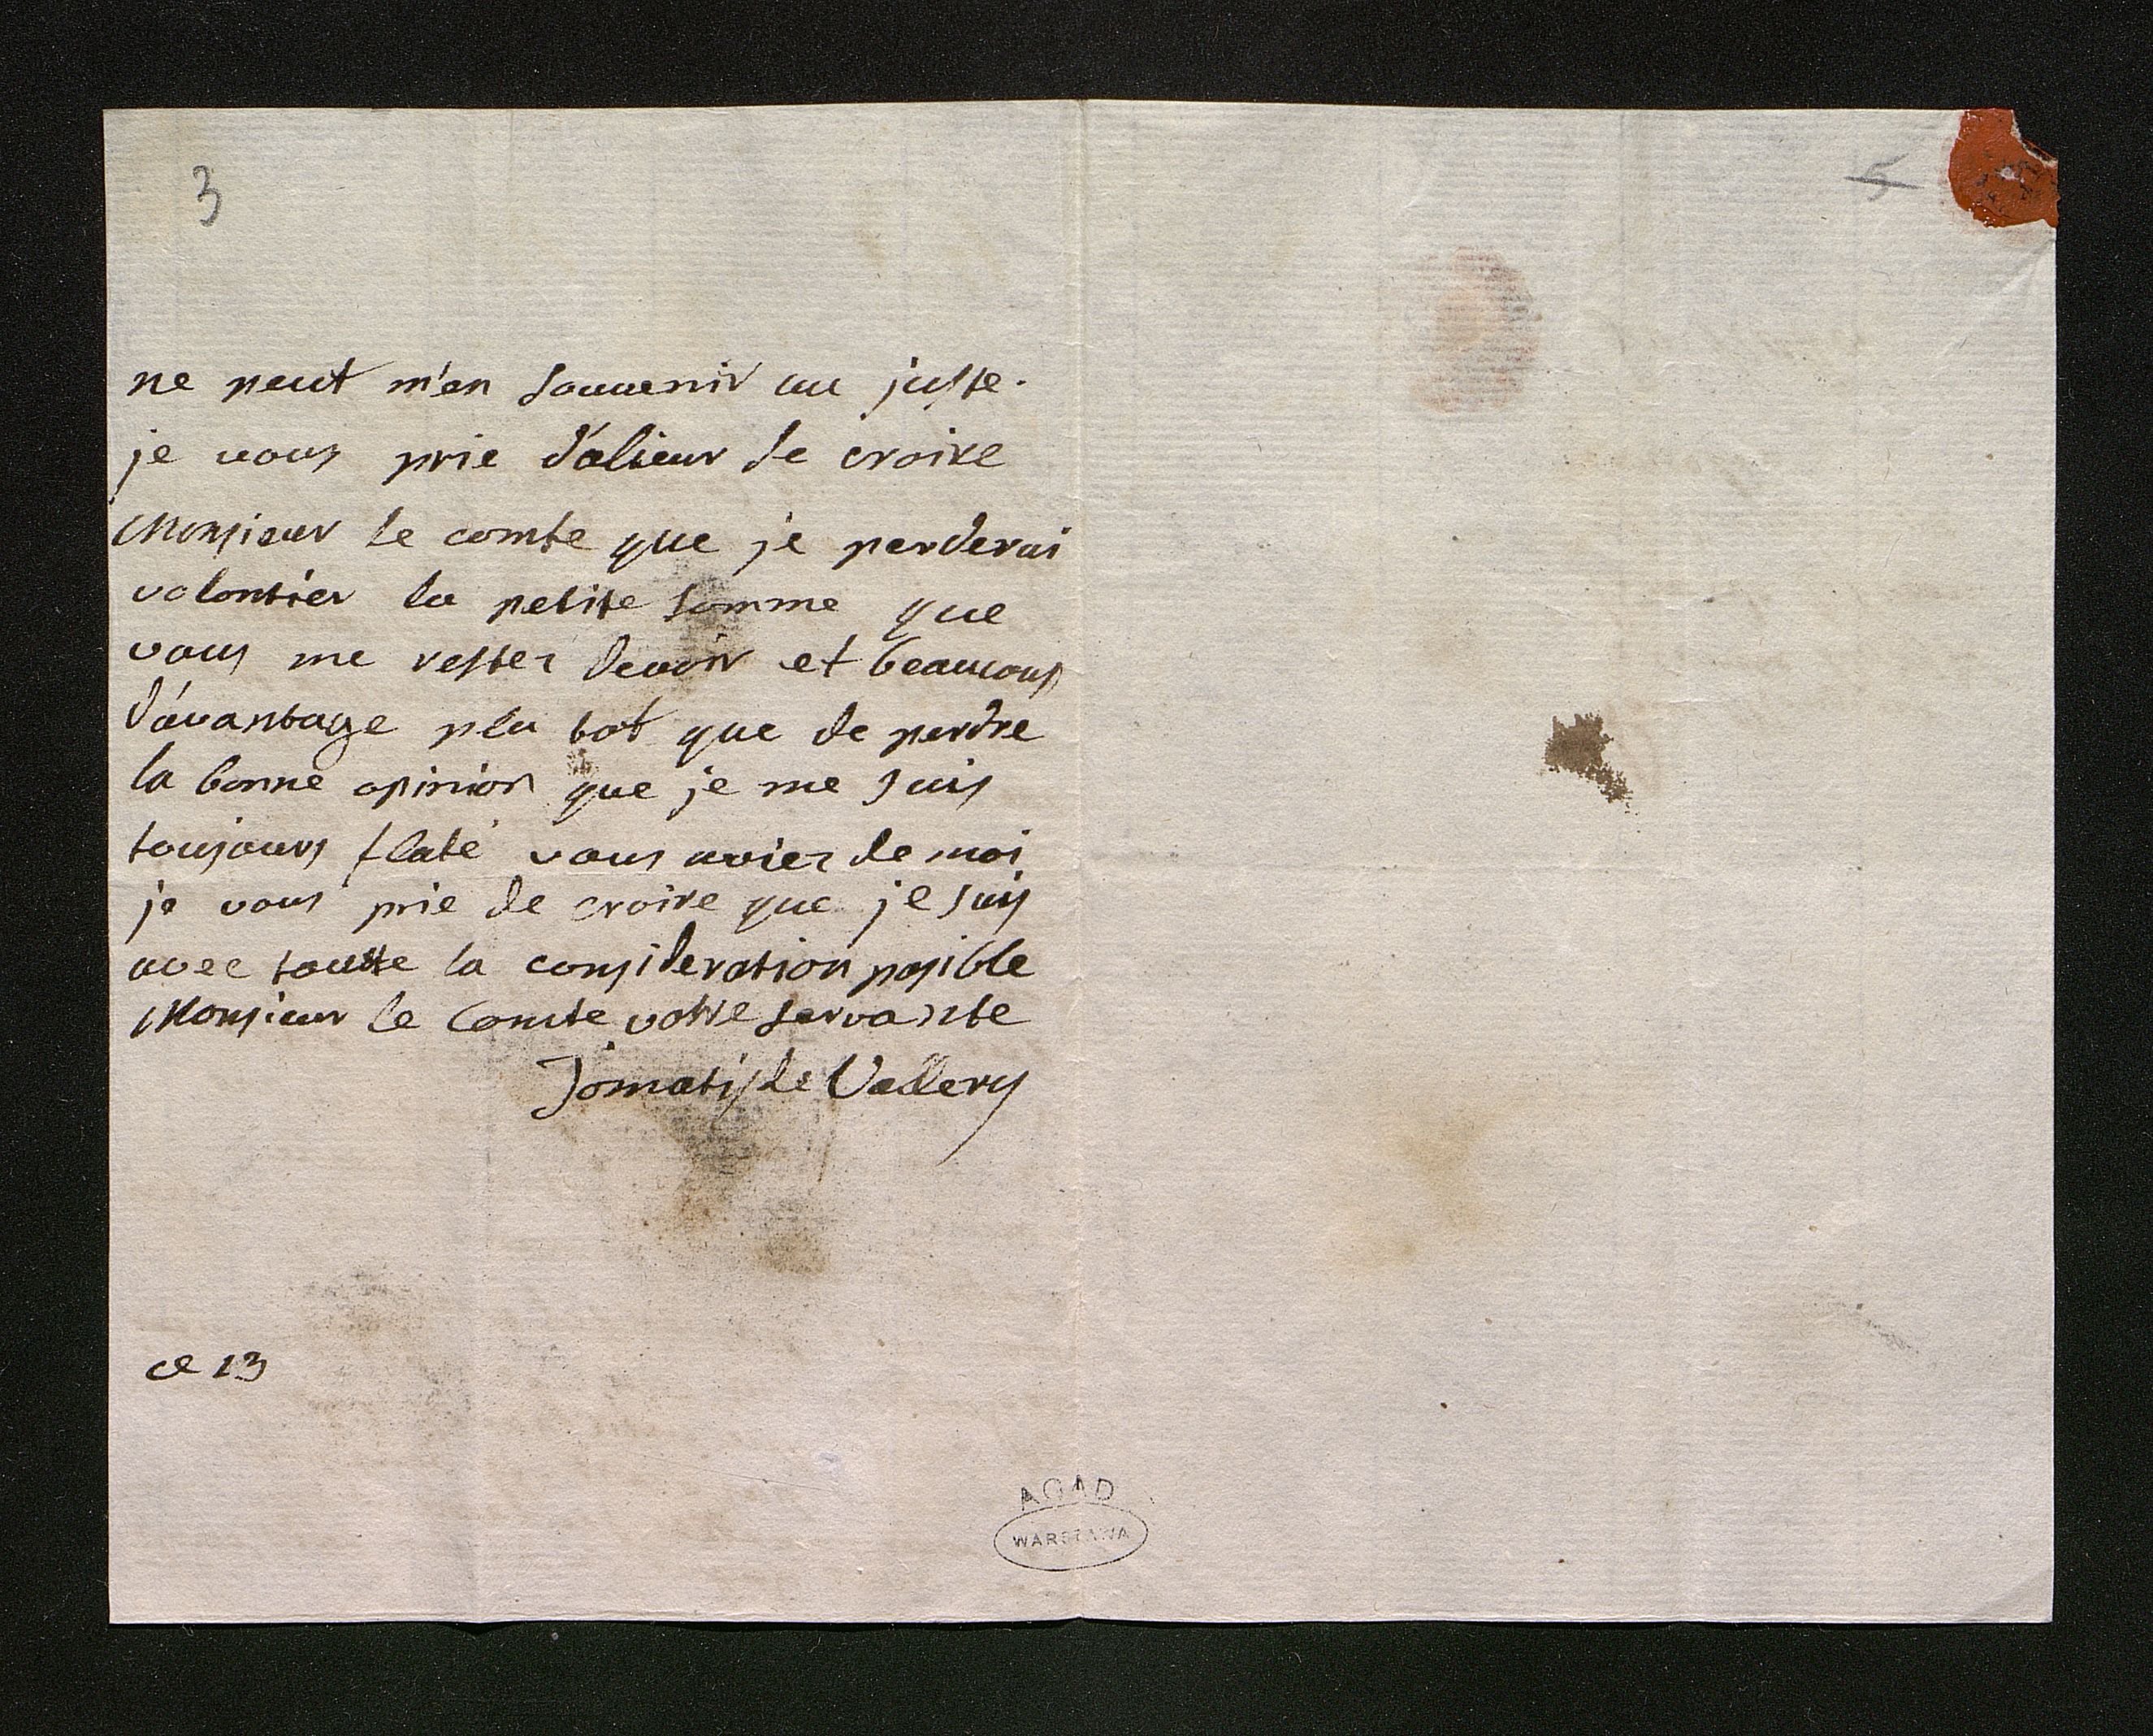 3
5
ne peut m'en souuenir au juste.
je uous prie d'alieur de croire
Monsieur le comte que je perderai
volontier la petite somme que
vous me restez deuoir et beaucoup
d'avantage plu tot que de perdre
la bonne opinion que je me suis
toujours flaté vous aviez de moi
je vous prie de croire que je suis
avec toutte la consideration posible
Monsieur le Comte votre servante
Tomatis de Vallery
ce 13
AGAD
WARSZAWA